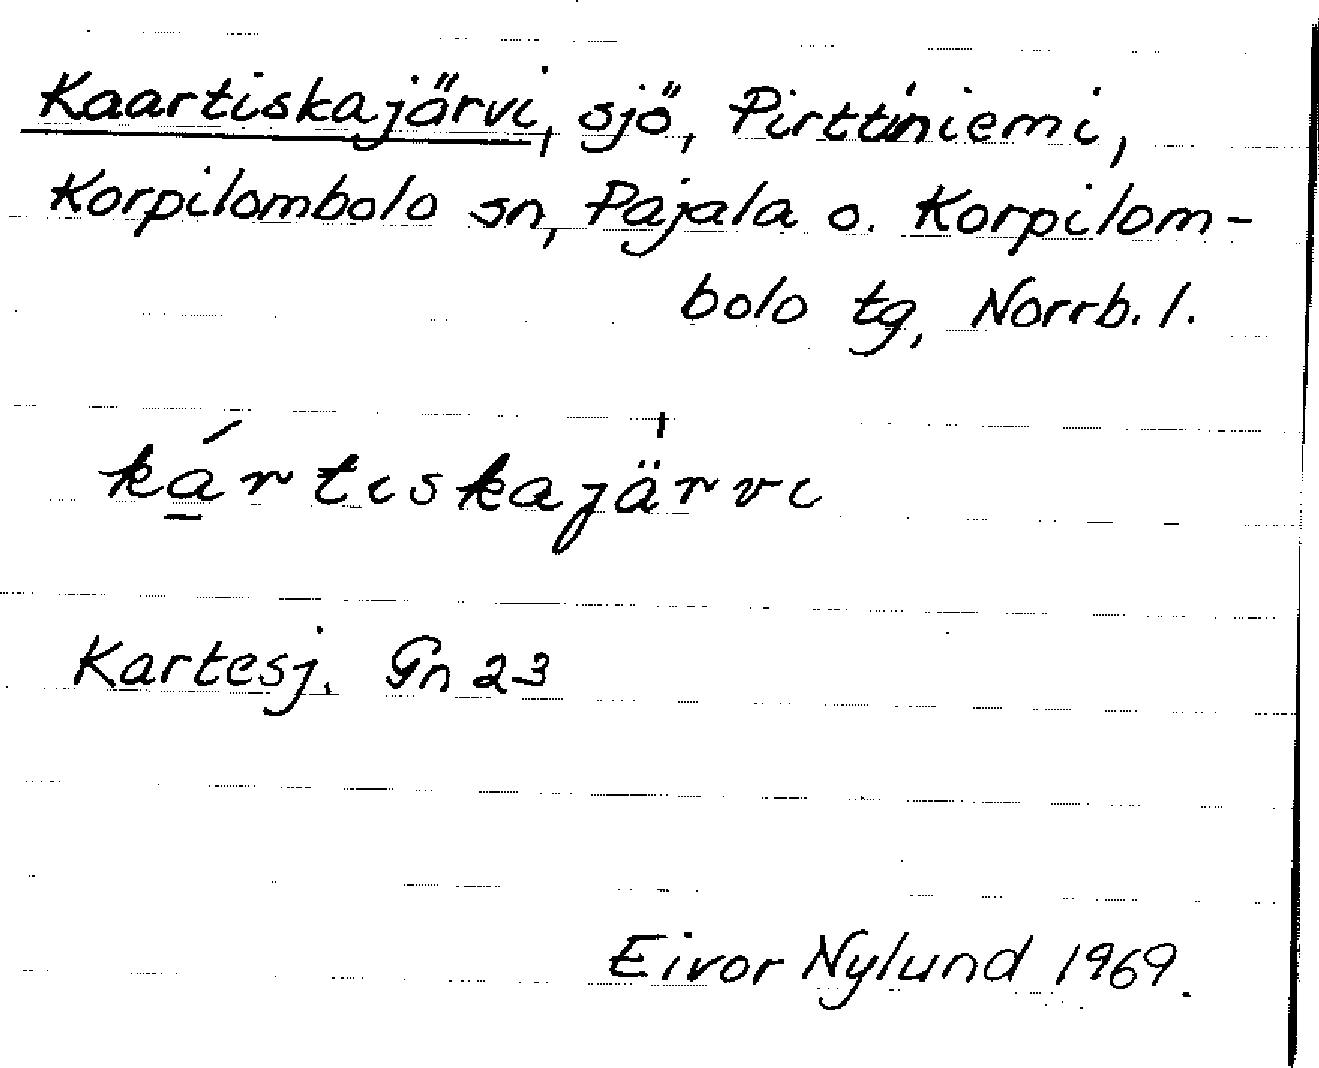 Kaartiskajärvi, sjö, Pirttiniemi,
Korpilombolo sn, Pajala o. Korpilom-
bolo tg, Norrb. l.
ká̱rtiskajärvi
Kartesj. Gn 23
Eivor Nylund 1969.